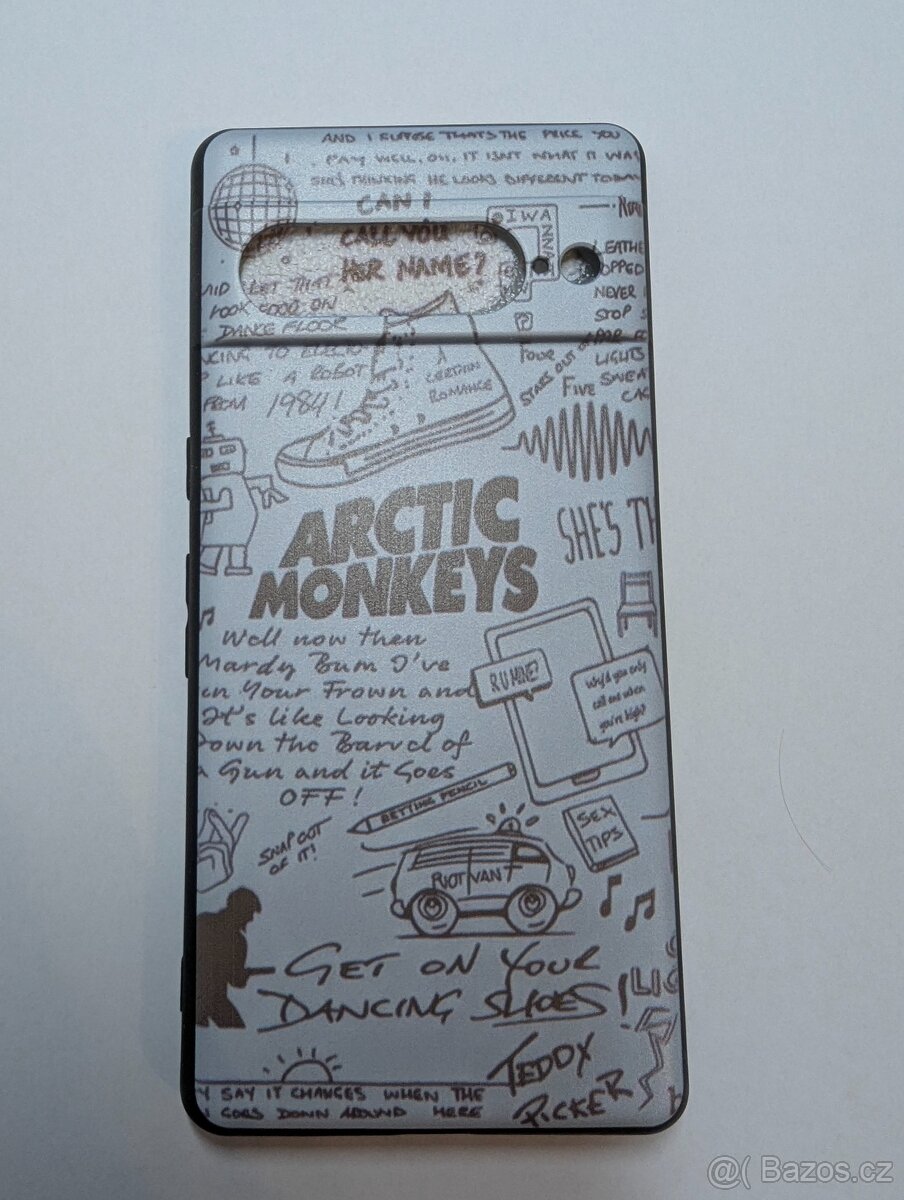 AND I SUPPOSE THAT'S THE PRICE YOU
PAY WELL, OH, IT ISNT WHAT IT WAS
SHE'S THINKING HE LOOKS DIFFERENT TODAY
CAN I
CALL YOU
HER NAME?
I WANNA
LEATHE
OPPED
NEVER
STOP
LIGHTS
SNEA
LET THAT
LOOK GOOD ON
DANCE FLOOR
NCING TO
LIKE A ROBOT
FROM 1984!
A
CERTAIN
ROMANCE
?
FOUR
STARS OUT OF
FIVE
ARCTIC
MONKEYS
SHE'S TH
Well now then
Mardy Bum I've
in Your Frown and
It's like Looking
own the Barrel of
a Gun and it Goes
OFF!
R U MINE?
Why'd you only
call me when
you're high?
BETTING PENCIL
SNAP OUT
OF IT!
SEX
TIPS
RIOT VAN
GET ON YOUR
DANCING SHOES!
TEDDY
PICKER
Y SAY IT CHANGES WHEN THE
GOES DOWN AROUND HERE
@( Bazos.cz